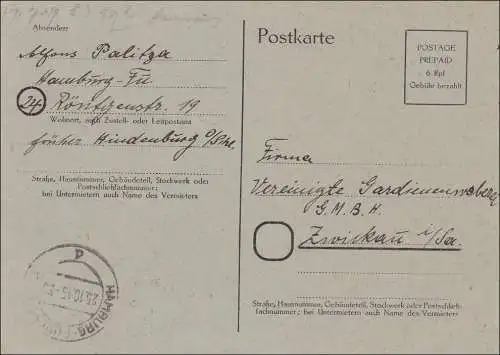 Absender:
Alfons Palitza
Hamburg-Fu.
24 Röntgenstr. 19
Wohnort, auch Zustell- oder Leitpostamt
früher Hindenburg O/Schl.
Straße, Hausnummer, Gebäudeteil, Stockwerk oder
Postschließfachnummer;
bei Untermietern auch Name des Vermieters
Postkarte
POSTAGE
PREPAID
6 Rpf
Gebühr bezahlt
Firma
Vereinigte Gardienenweberei
G.M.B.H.
Zwickau i/Sa.
Straße, Hausnummer, Gebäudeteil, Stockwerk oder Postschließ-
fachnummer; bei Untermietern auch Name des Vermieters
HAMBURG
23.10.45